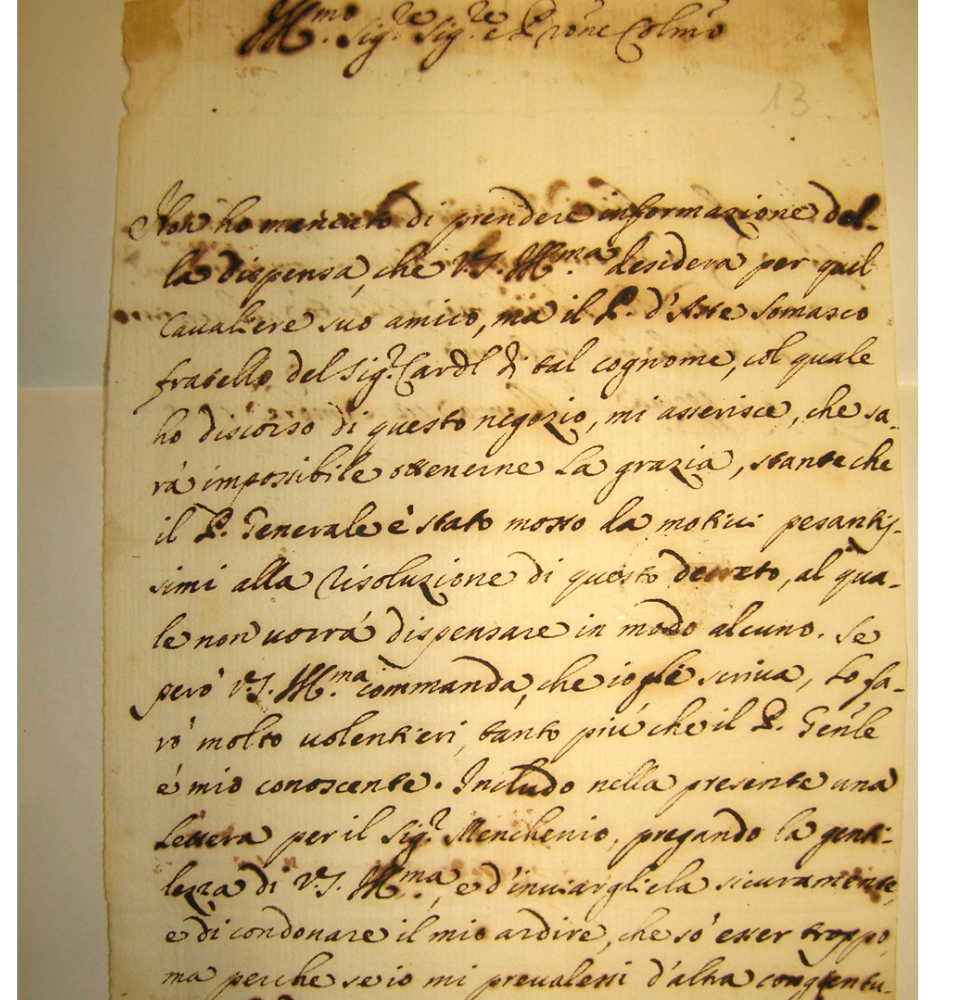 Ill.mo Sig.re Sig.re e Pron̄e Colm̄o
13
Non ho mancato di prendere informazione del-
la dispensa, che V.S. Ill.ma desidera per quel
Cavaliere suo amico, ma il P. d'Aste Somasco
fratello del Sig.r Cardl di tal cognome, col quale
ho discorso di questo negozio, mi asserisce, che sa-
rà impossibile ottenerne la grazia, stante che
il P. Generale è stato mosso da motivi pesantis-
simi alla risoluzione di questo decreto, al qua-
le non vorrà dispensare in modo alcuno. Se
però V.S. Ill.ma commanda, che io gli scriva, lo fa-
rò molto volentieri, tanto più che il P. Gen̄le
è mio conoscente. Includo nella presente una
lettera per il Sig.r Menchenio, pregando la genti-
lezza di V.S. Ill.ma, e d'inviargliela sicuramente,
e di condonare il mio ardire, che sò esser troppo,
ma perche se io mi prevalessi d'altra congientu-